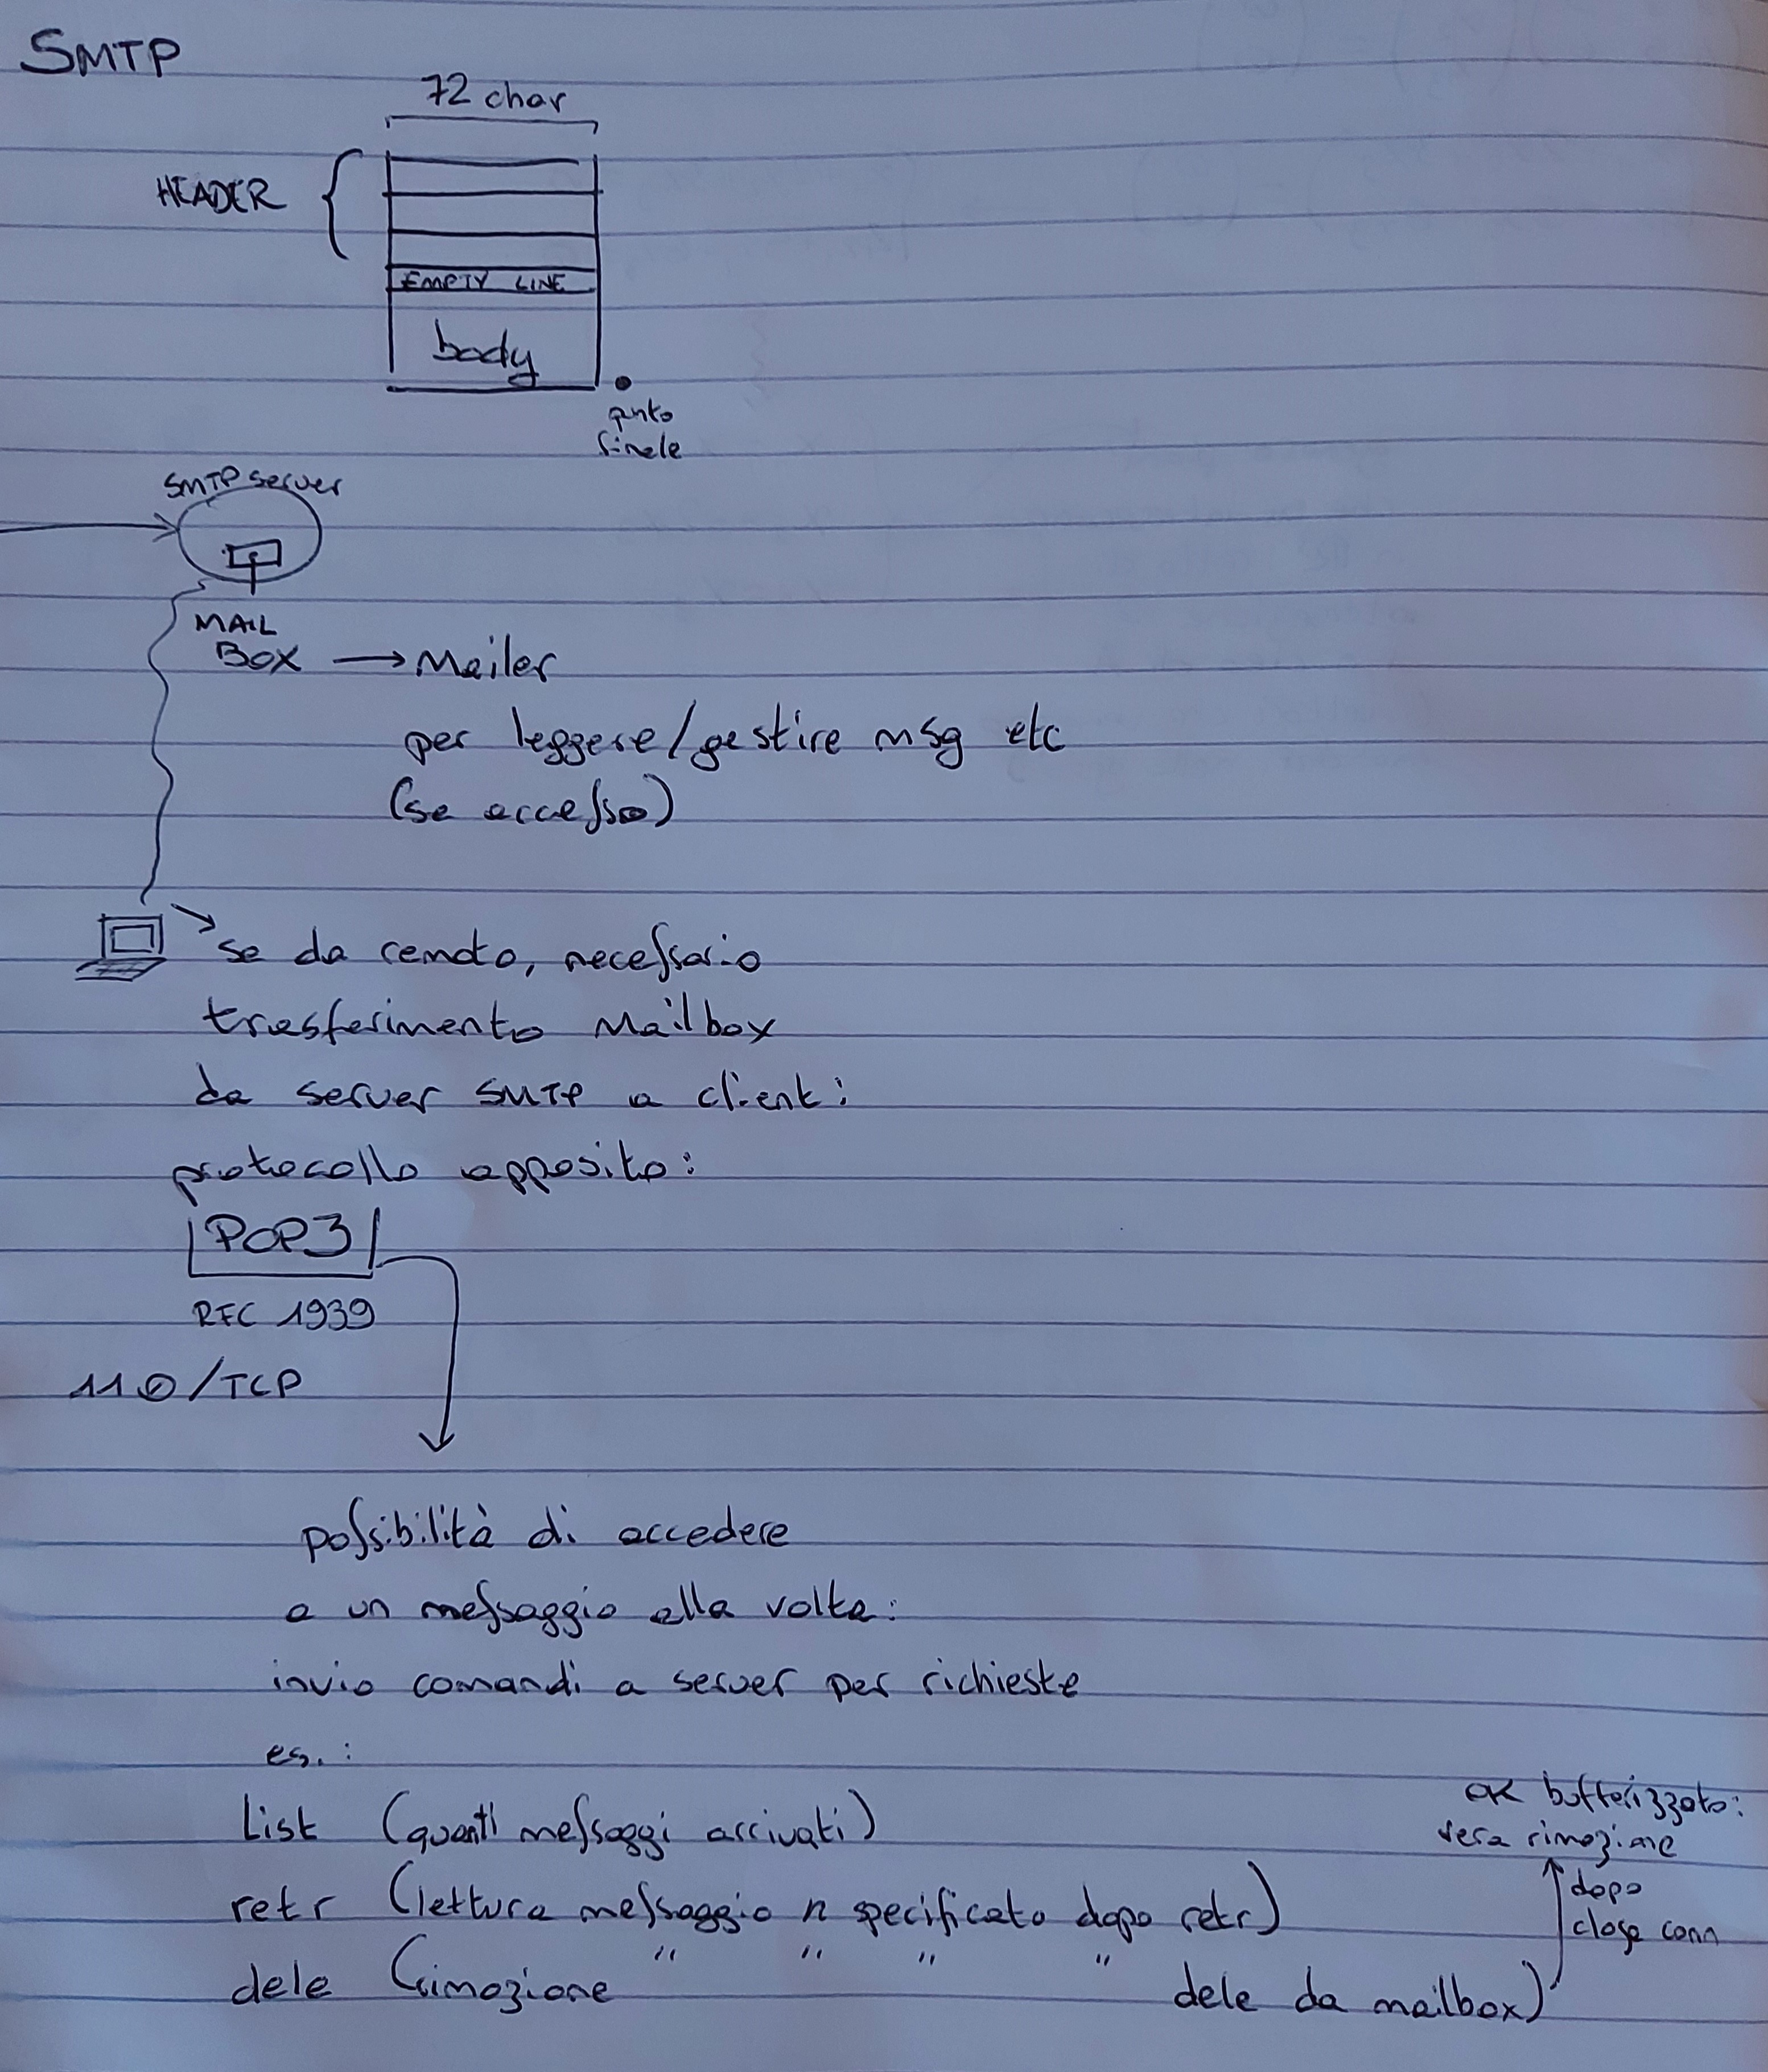 SMTP
72 char
HEADER
EMPTY LINE
body
punto
finale
SMTP server
MAIL
BOX → Mailer
per leggere/gestire msg etc
(se accesso)
se da remoto, necessario
trasferimento Mailbox
da server SMTP a client:
protocollo apposito:
POP3
RFC 1939
110/TCP
possibilità di accedere
a un messaggio alla volta:
invio comandi a server per richieste
es. :
List (quanti messaggi arrivati)
ok bufferizzato:
vera rimozione
retr (lettura messaggio n specificato dopo retr)
dopo
close conn
dele (rimozione " " " " dele da mailbox)